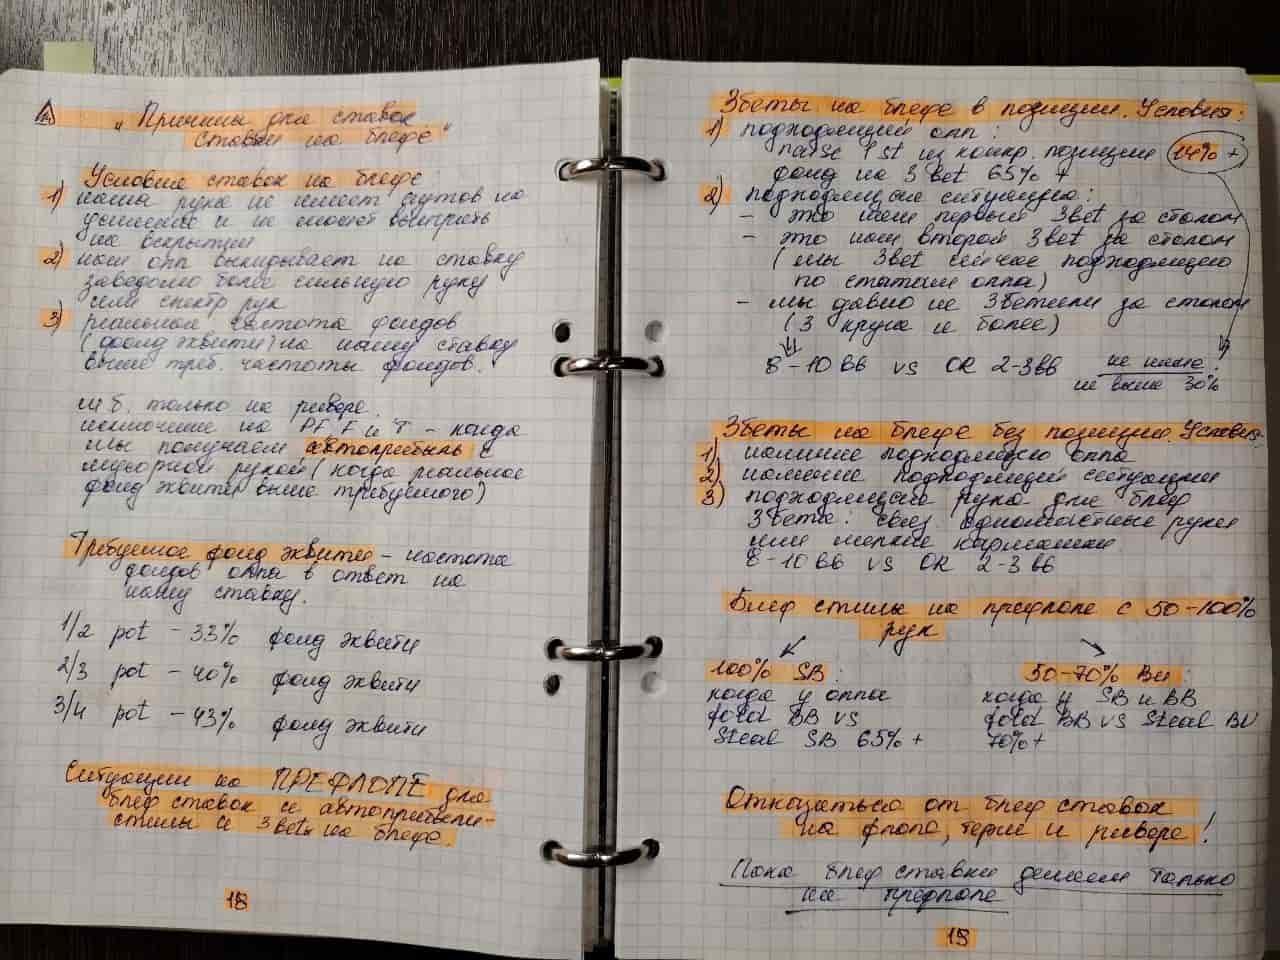 "Причины для ставок.
Ставки на блефе"
Условия ставок на блефе:
1) наша рука не имеет аутов на
удышение и не может выиграть
на вскрытии
2) наш опп выкидывает на ставку
заведомо более сильную руку
или спектр рук
3) реальная частота фолдов
(фолд эквити) на нашу ставку
выше треб. частоты фолдов.
м.б. только на ривере.
исключение на PF, F и T - когда
мы получаем автоприбыль с
мусорной рукой (когда реальное
фолд эквити выше требуемого)
Требуемое фолд эквити - частота
фолдов оппа в ответ на
нашу ставку.
1/2 pot - 33% фолд эквити
2/3 pot - 40% фолд эквити
3/4 pot - 43% фолд эквити
Ситуации на ПРЕФЛОПЕ для
блеф ставок и автоприбыли-
стилы и 3bet на блефе.
18
3беты на блефе в позиции. Условия:
1) подходящий опп:
raise 1st из конкр. позиции 14% +
фолд на 3bet 65% +
2) подходящие ситуации:
- это наш первый 3bet за столом
- это наш второй 3bet за столом
(мы 3bet сейчас подходящего
по статам оппа)
- мы давно не 3бетили за столом
(3 круга и более)
8-10 ВВ vs OR 2-3вв не ниже!
не выше 30%
3беты на блефе без позиции. Условия:
1) наличие подходящего оппа
2) наличие подходящей ситуации
3) подходящая рука для блеф
3бета: связ. одномастные руки
или мелкие карманки
8-10 ВВ vs OR 2-3 вв
Блеф стилы на префлопе с 50-100%
рук
100% SB:
когда у оппа
fold BB vs
Steal SB 65% +
50-70% BU:
когда у SB и BB
fold BB vs Steal BU
70% +
Отказаться от блеф ставок
на флопе, терне и ривере!
Пока блеф ставки делаем только
на префлопе
19